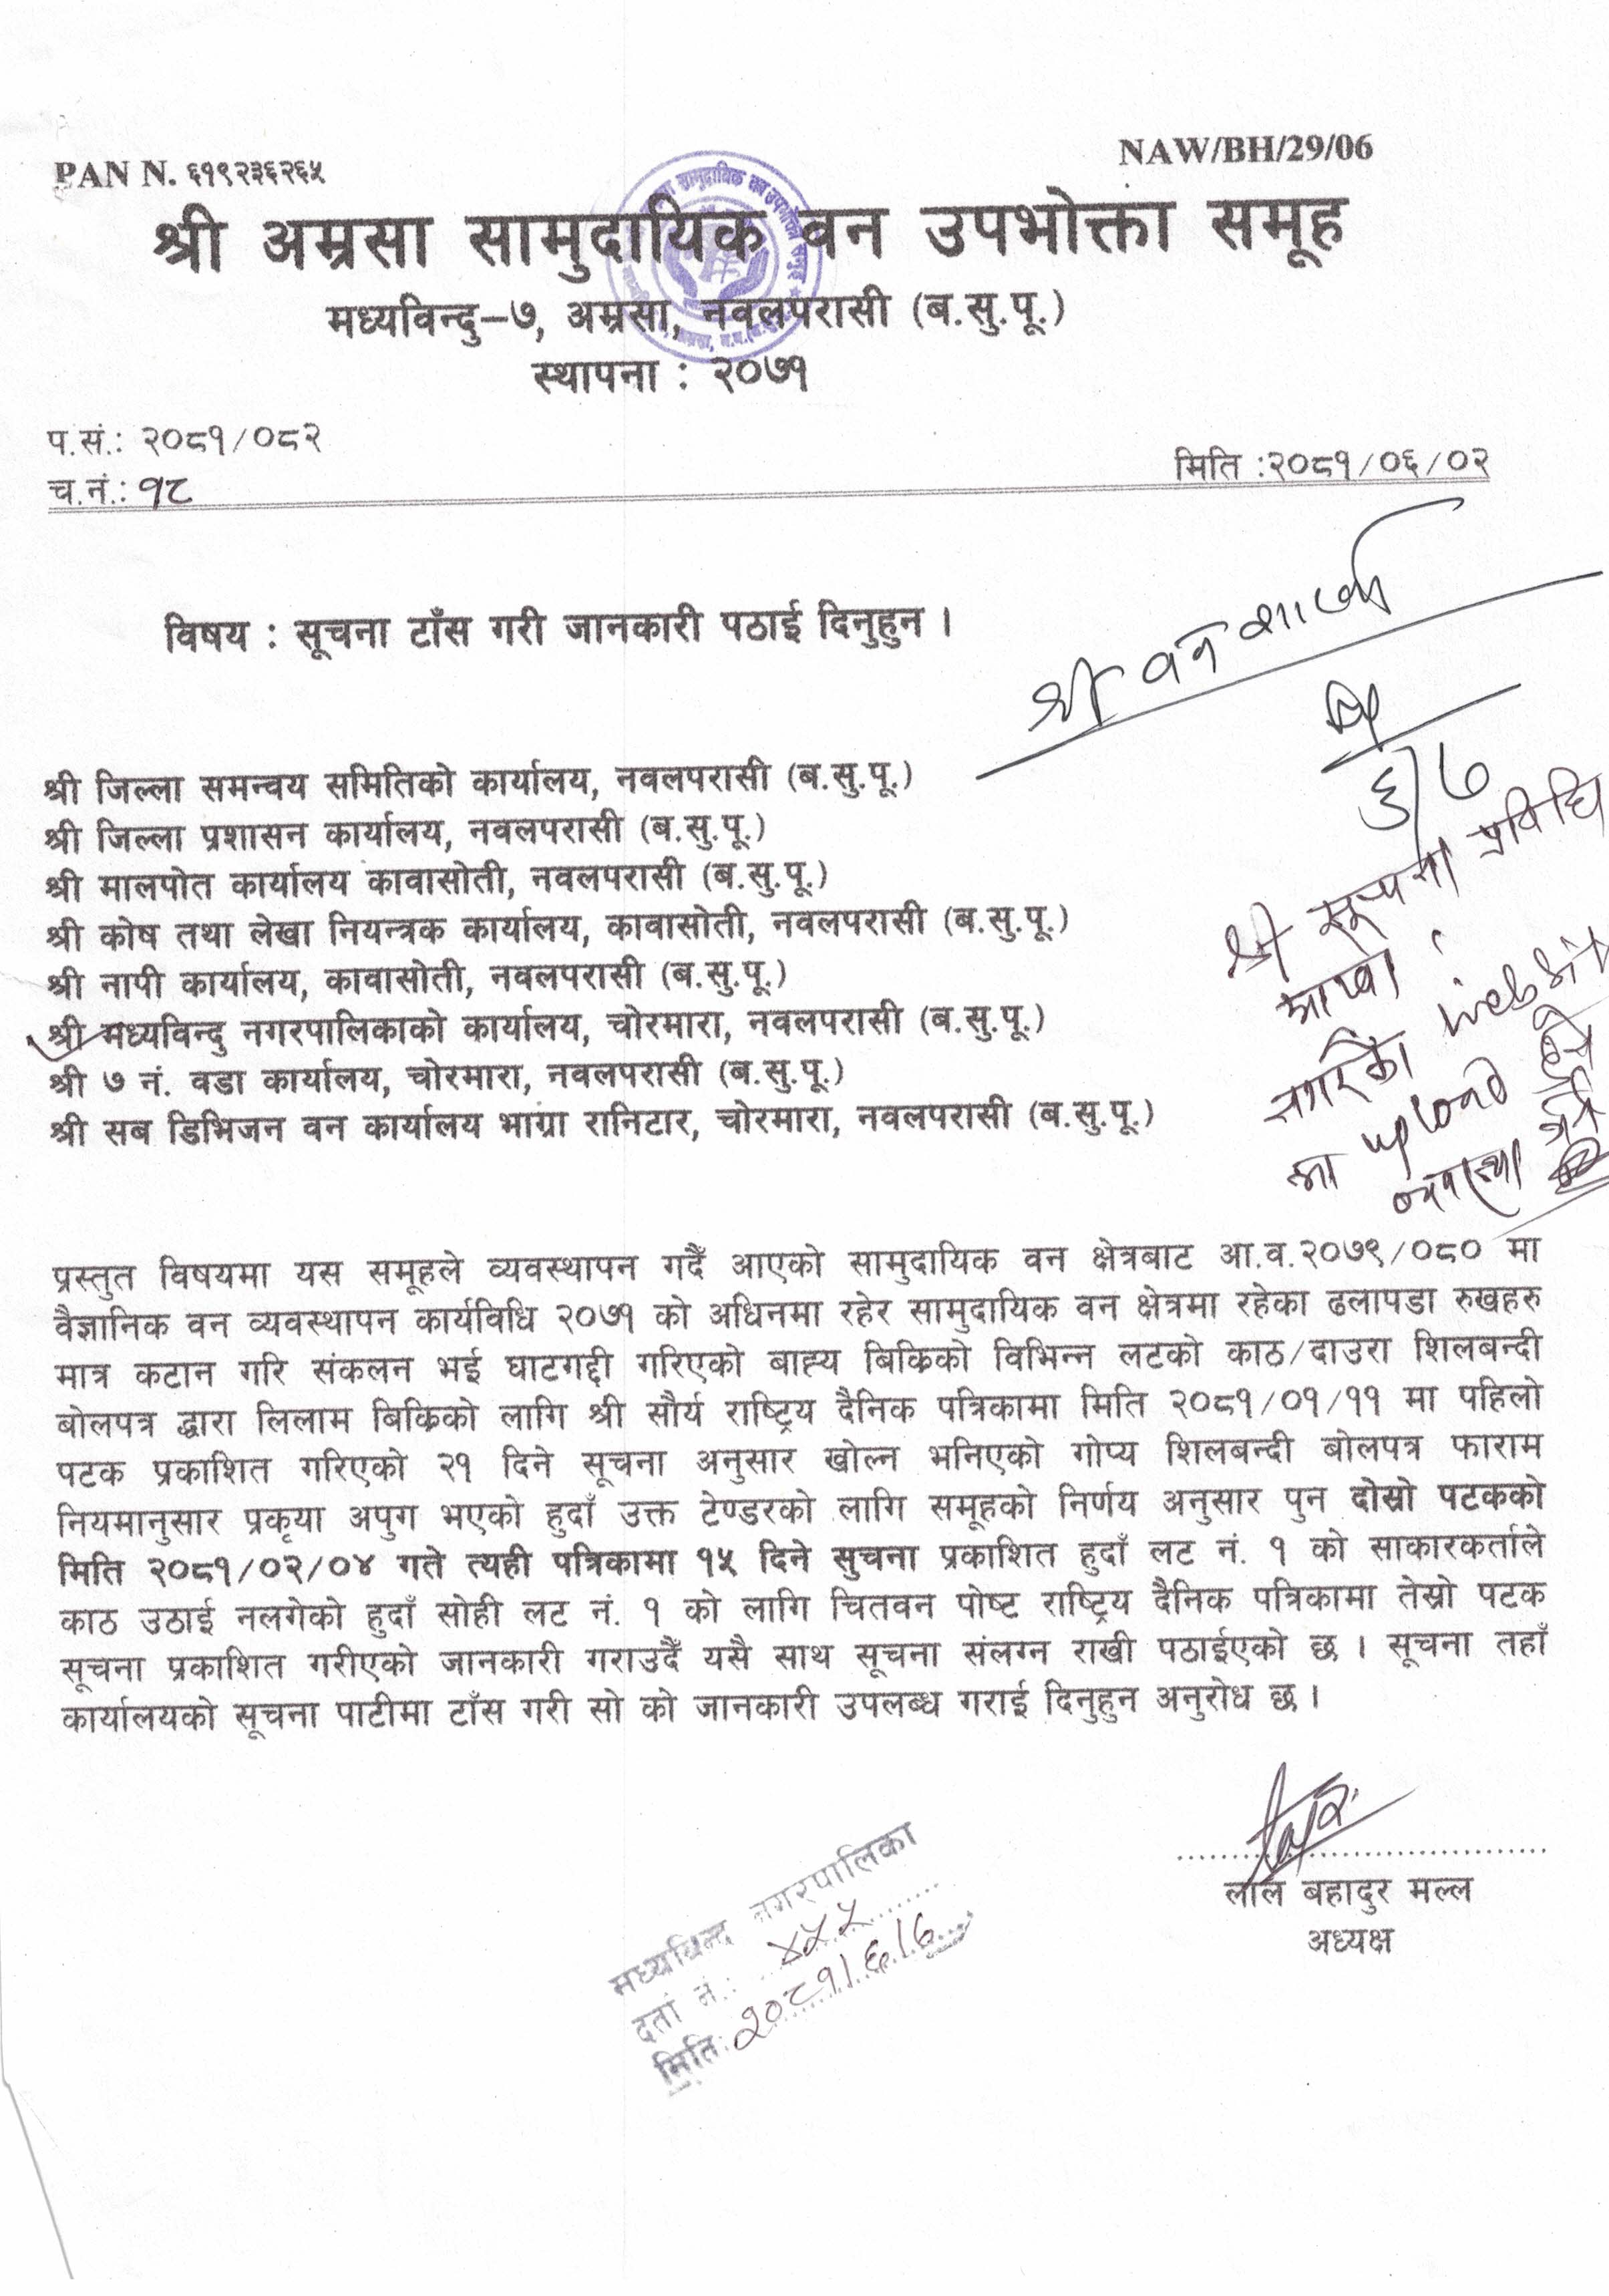 PAN N. ६१९२३६२६५
NAW/BH/29/06
श्री अम्रसा सामुदायिक वन उपभोक्ता समूह
मध्यविन्दु–७, अम्रसा, नवलपरासी (ब.सु.पू.)
स्थापना : २०७१
प.सं.: २०८१/०८२
मिति :२०८१/०६/०२
च.नं.: १८
विषय : सूचना टाँस गरी जानकारी पठाई दिनुहुन ।
श्री वन शाखा
६/७
श्री जिल्ला समन्वय समितिको कार्यालय, नवलपरासी (ब.सु.पू.)
श्री जिल्ला प्रशासन कार्यालय, नवलपरासी (ब.सु.पू.)
श्री मालपोत कार्यालय कावासोती, नवलपरासी (ब.सु.पू.)
श्री कोष तथा लेखा नियन्त्रक कार्यालय, कावासोती, नवलपरासी (ब.सु.पू.)
श्री नापी कार्यालय, कावासोती, नवलपरासी (ब.सु.पू.)
श्री मध्यविन्दु नगरपालिकाको कार्यालय, चोरमारा, नवलपरासी (ब.सु.पू.)
श्री ७ नं. वडा कार्यालय, चोरमारा, नवलपरासी (ब.सु.पू.)
श्री सब डिभिजन वन कार्यालय भाग्रा रानिटार, चोरमारा, नवलपरासी (ब.सु.पू.)
श्री सूचना प्रविधि
शाखा
website
मा upload
व्यवस्था
प्रस्तुत विषयमा यस समूहले व्यवस्थापन गर्दै आएको सामुदायिक वन क्षेत्रबाट आ.व.२०७९/०८० मा
वैज्ञानिक वन व्यवस्थापन कार्यविधि २०७१ को अधिनमा रहेर सामुदायिक वन क्षेत्रमा रहेका ढलापडा रुखहरु
मात्र कटान गरि संकलन भई घाटगद्दी गरिएको बाह्य बिक्रिको विभिन्न लटको काठ/दाउरा शिलबन्दी
बोलपत्र द्धारा लिलाम बिक्रिको लागि श्री सौर्य राष्ट्रिय दैनिक पत्रिकामा मिति २०८१/०१/११ मा पहिलो
पटक प्रकाशित गरिएको २१ दिने सूचना अनुसार खोल्न भनिएको गोप्य शिलबन्दी बोलपत्र फाराम
नियमानुसार प्रकृया अपुग भएको हुदाँ उक्त टेण्डरको लागि समूहको निर्णय अनुसार पुन दोस्रो पटकको
मिति २०८१/०२/०४ गते त्यही पत्रिकामा १५ दिने सुचना प्रकाशित हुदाँ लट नं. १ को साकारकर्ताले
काठ उठाई नलगेको हुदाँ सोही लट नं. १ को लागि चितवन पोष्ट राष्ट्रिय दैनिक पत्रिकामा तेस्रो पटक
सूचना प्रकाशित गरीएको जानकारी गराउदैँ यसै साथ सूचना संलग्न राखी पठाईएको छ । सूचना तहाँ
कार्यालयको सूचना पाटीमा टाँस गरी सो को जानकारी उपलब्ध गराई दिनुहुन अनुरोध छ ।
लाल बहादुर मल्ल
अध्यक्ष
मध्यविन्दु नगरपालिका
दर्ता नं.: ४५५
मिति: २०८१/६/७